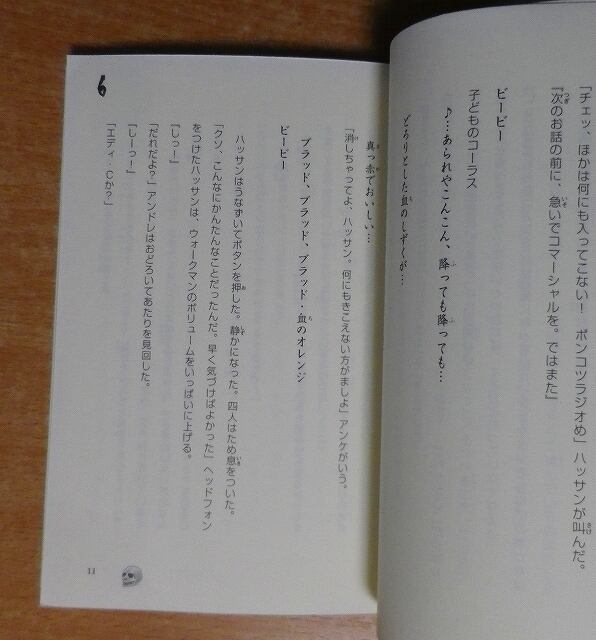 「チェッ、ほかは何にも入ってこない！　ポンコツラジオめ」ハッサンが叫んだ。
『次のお話の前に、急いでコマーシャルを。ではまた』
ビービー
子どものコーラス
♪…あられやこんこん、降っても降っても…
どろりとした血のしずくが…
真っ赤でおいしい…
「消しちゃってよ、ハッサン。何にもきこえない方がましよ」アンケがいう。
ブラッド、ブラッド、ブラッド・血のオレンジ
ビービー
ハッサンはうなずいてボタンを押した。静かになった。四人はため息をついた。
「クソ、こんなにかんたんなことだったんだ。早く気づけばよかった」ヘッドフォン
をつけたハッサンは、ウォークマンのボリュームをいっぱいに上げる。
「しっー」
「だれだよ？」アンドレはおどろいてあたりを見回した。
「しーっー」
「エディ・Cか？」
6
11